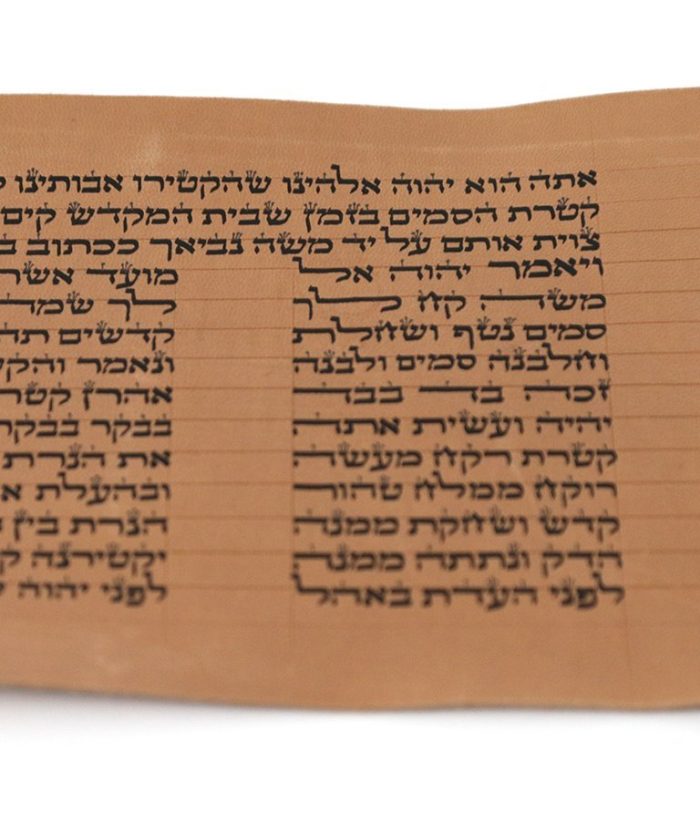 אתה הוא יהוה אלהינו שהקטירו אבותינו
קטרת הסמים בזמן שבית המקדש קים
צוית אותם על יד משה נביאך ככתוב ב
ויאמר יהוה אל
משה קח לך
סמים נטף ושחלת
וחלבנה סמים ולבנה
זכה בד בבד
יהיה ועשית אתה
קטרת רקח מעשה
רוקח ממלח טהור
קדש ושחקת ממנה
הדק ונתתה ממנה
לפני העדת באהל
מועד אשר
לך שמה
קדשים
ונאמר והק
אהרן קטר
בבקר בבקר
את הנרת
ובהעלת א
הנרת בין
יקטירנה ק
לפני יהוה